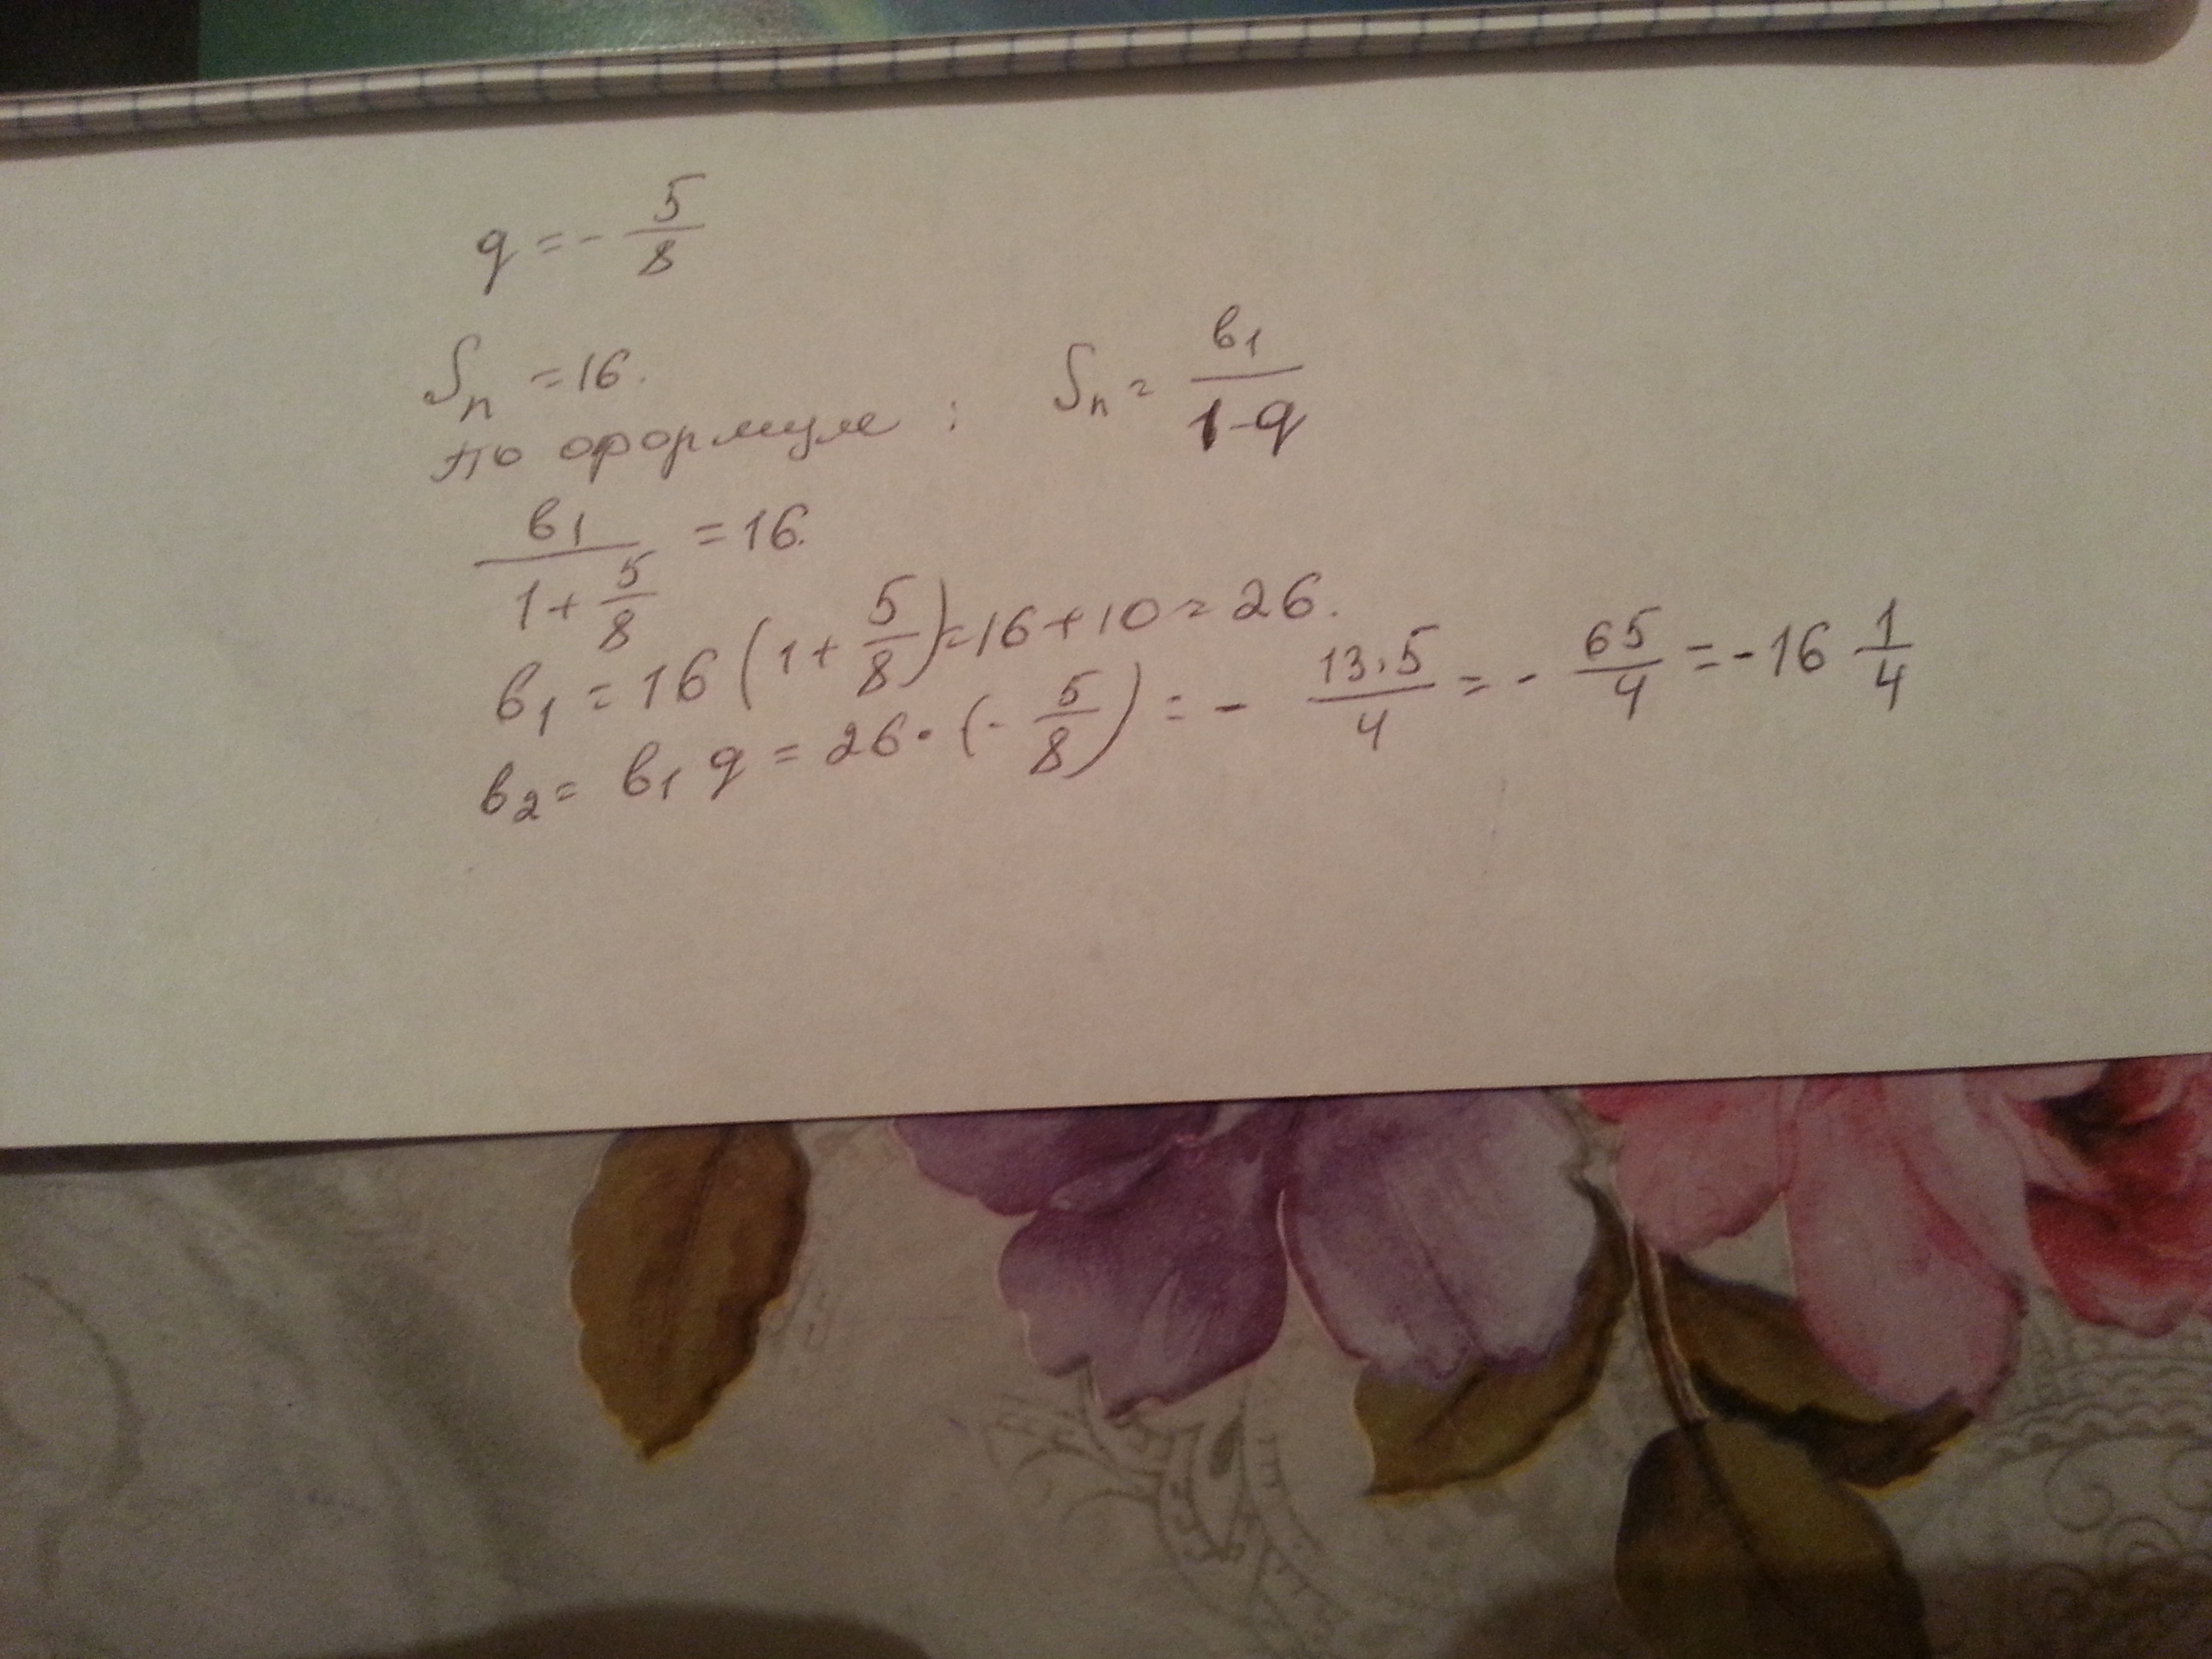 q = - 5/8
Sn = 16.
по формуле : Sn = в1/(1-q)
в1/(1 + 5/8) = 16.
в1 = 16 (1 + 5/8) = 16 + 10 = 26.
в2 = в1 q = 26 · (- 5/8) = - 13·5/4 = - 65/4 = - 16 1/4